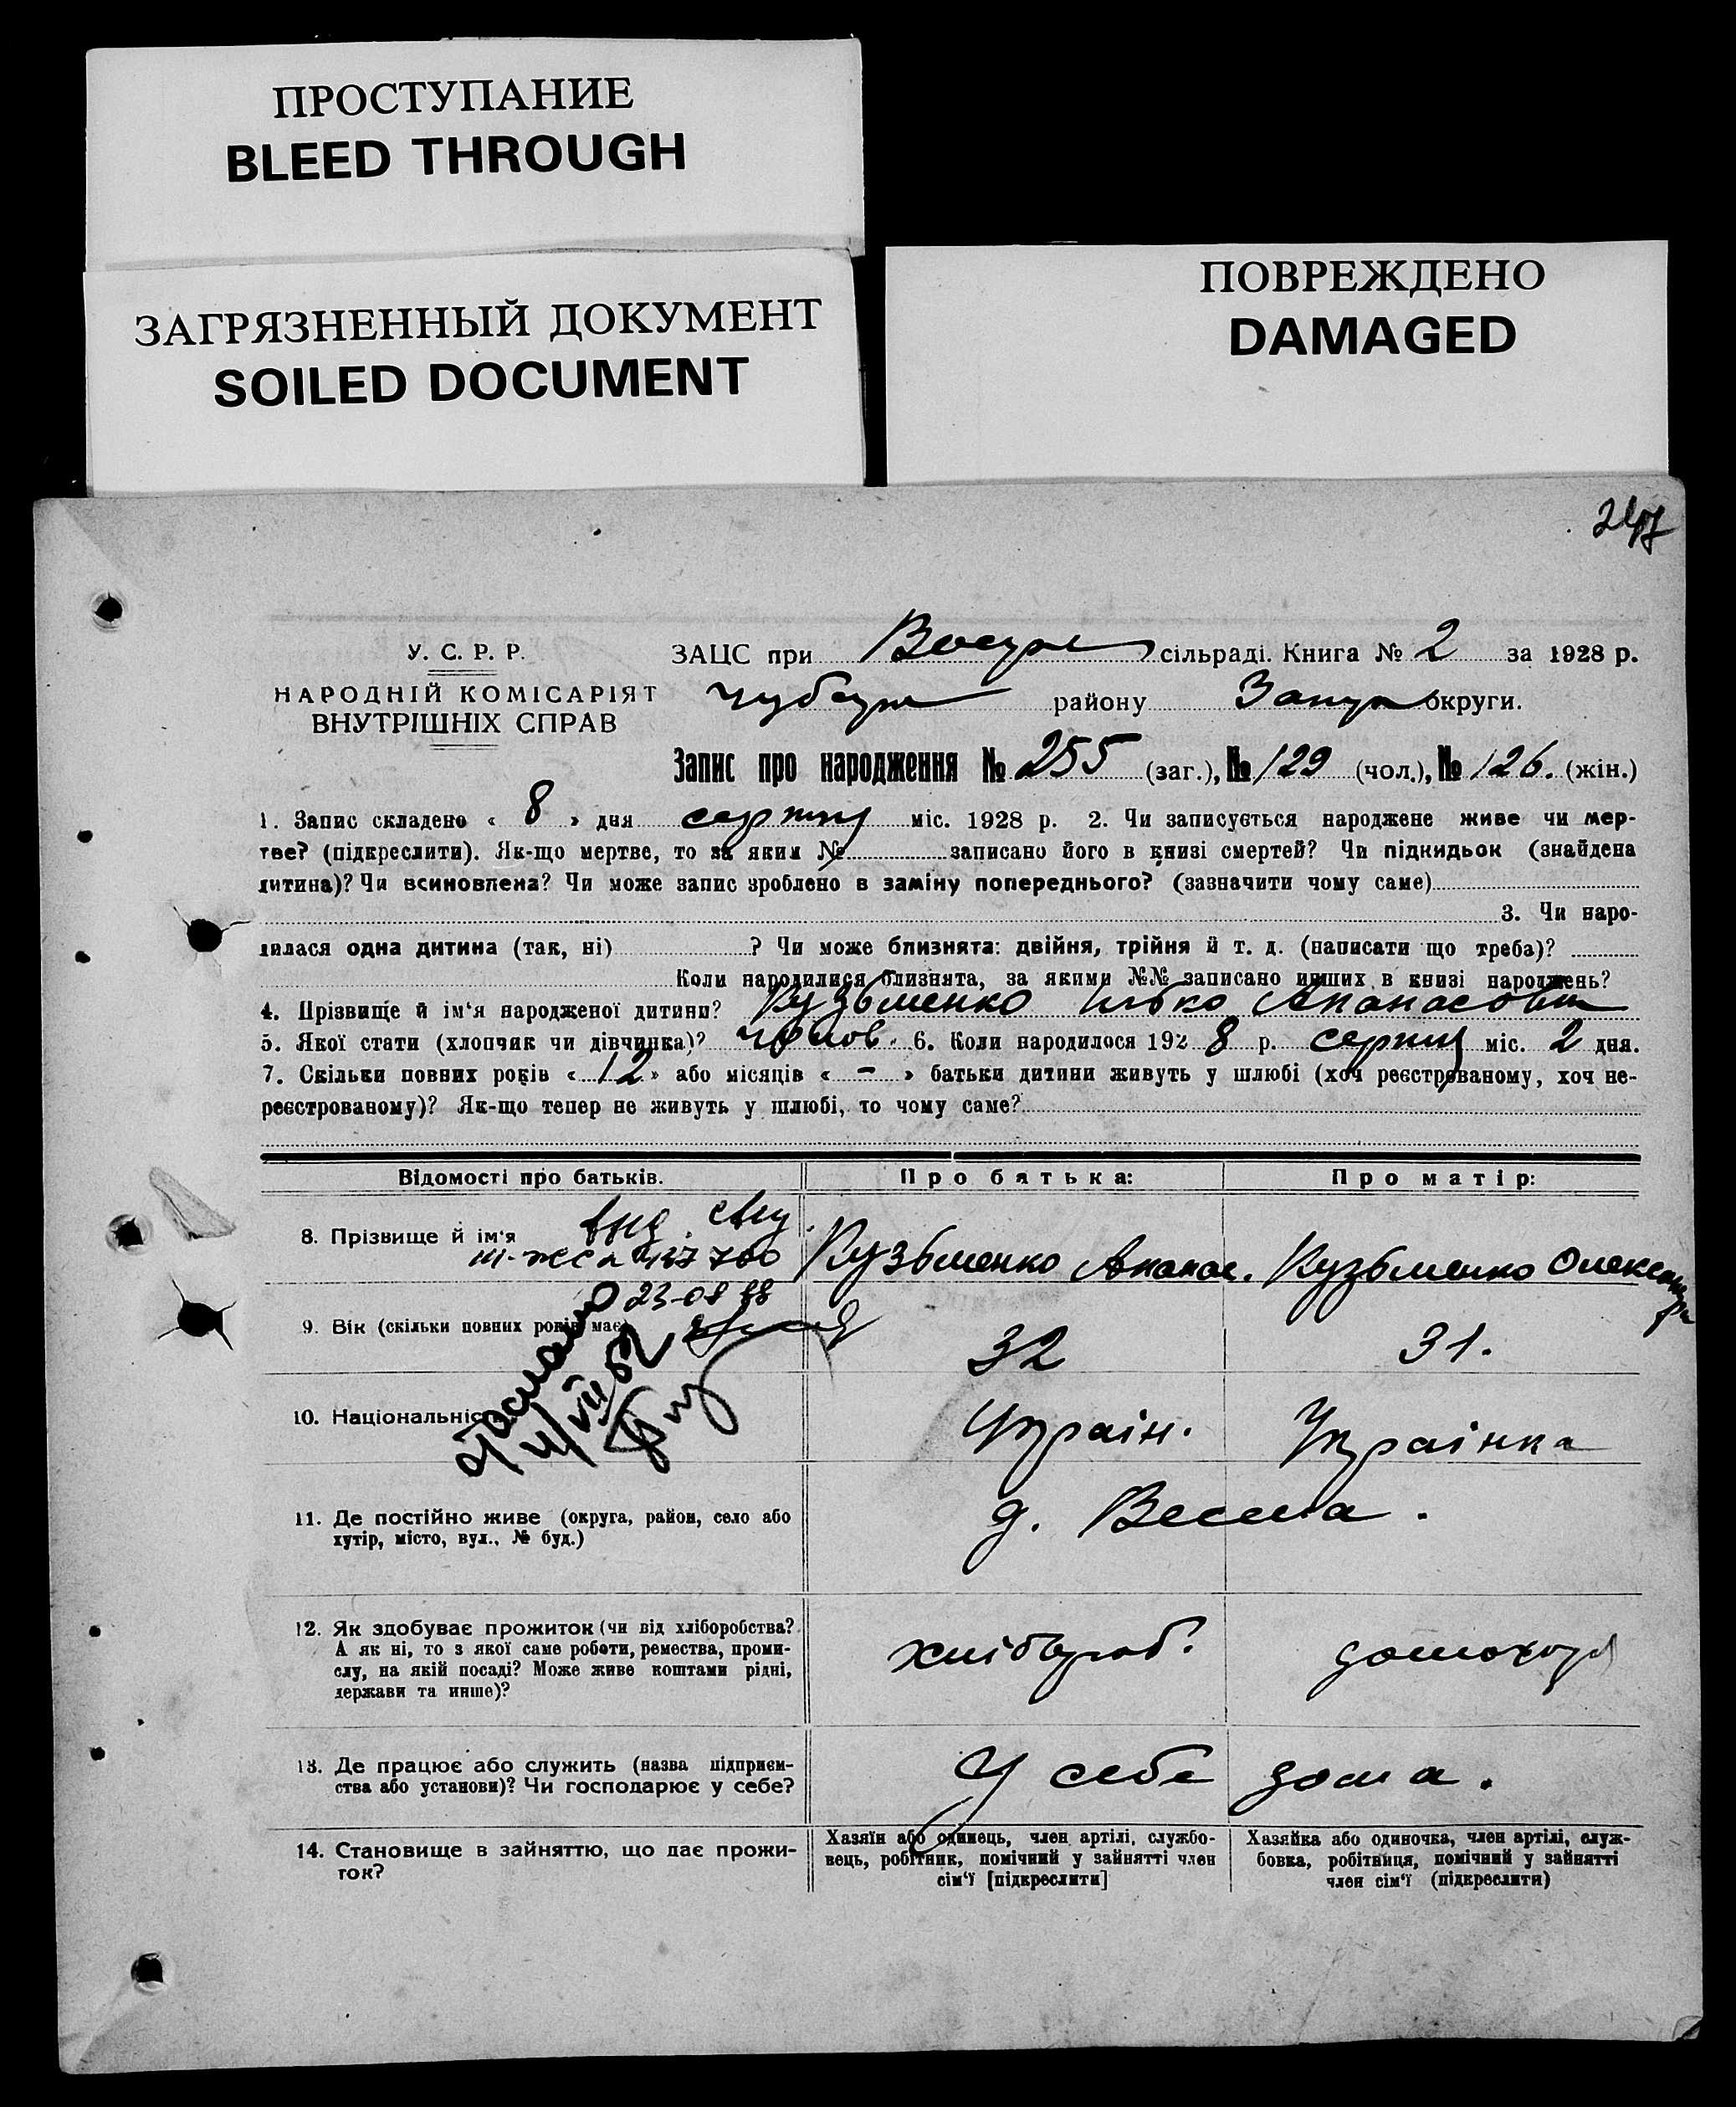 ПРОСТУПАНИЕ
BLEED THROUGH
ЗАГРЯЗНЕННЫЙ ДОКУМЕНТ
SOILED DOCUMENT
ПОВРЕЖДЕНО
DAMAGED
247
У. С. Р. Р.
НАРОДНІЙ КОМІСАРІЯТ
ВНУТРІШНІХ СПРАВ
ЗАЦС при сільраді. Книга № 2 за 1928 р.
району округи.
Запис про народження № 255 (заг.), № 129 (чол.), № 126. (жін.)
1. Запис складено « 8 » дня серпня міс. 1928 р. 2. Чи записується народжене живе чи мер-
тве? (підкреслити). Як-що мертве, то за яким № записано його в книзі смертей? Чи підкидьок (знайдена
дитина)? Чи всиновлена? Чи може запис зроблено в заміну попереднього? (зазначити чому саме)
3. Чи наро-
дилася одна дитина (так, ні) ? Чи може близнята: двійня, трійня й т. д. (написати що треба)?
Коли народилися близнята, за якими №№ записано инших в книзі народжень?
4. Прізвище й ім'я народженої дитини? Кузьменко Ілько Апанасович
5. Якої стати (хлопчик чи дівчинка)? чолов. 6. Коли народилося 192 8 р. серпня міс. 2 дня.
7. Скільки повних років « 12 » або місяців « - » батьки дитини живуть у шлюбі (хоч реєстрованому, хоч не-
реєстрованому)? Як-що тепер не живуть у шлюбі, то чому саме?
Відомості про батьків. Про батька: Про матір:
8. Прізвище й ім'я Кузьменко Апанас. Кузьменко Олександра
23-08 88
9. Вік (скільки повних років має) 32 31.
10. Національність Україн. Українка
11. Де постійно живе (округа, район, село або
хутір, місто, вул., № буд.)
д. Весела.
12. Як здобуває прожиток (чи від хліборобства?
А як ні, то з якої саме роботи, ремества, проми-
слу, на якій посаді? Може живе коштами рідні,
держави та инше)?
хлібороб. домохоз
13. Де працює або служить (назва підприєм-
ства або установи)? Чи господарює у себе?
У себе дома.
14. Становище в зайняттю, що дає прожи-
ток?
Хазяїн або одинець, член артілі, службо-
вець, робітник, помічний у зайнятті член
сім'ї [підкреслити]
Хазяйка або одиночка, член артілі, служ-
бовка, робітниця, помічний у зайнятті
член сім'ї (підкреслити)